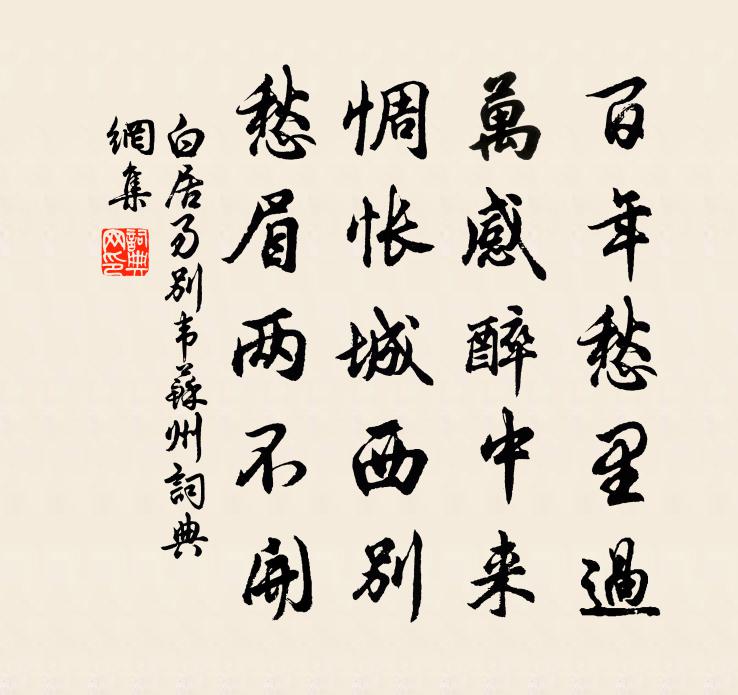 百年愁里過
萬感醉中来
惆怅城西別
愁眉两不開
白居易別韦蘇州詞典
網集
詞典
网印